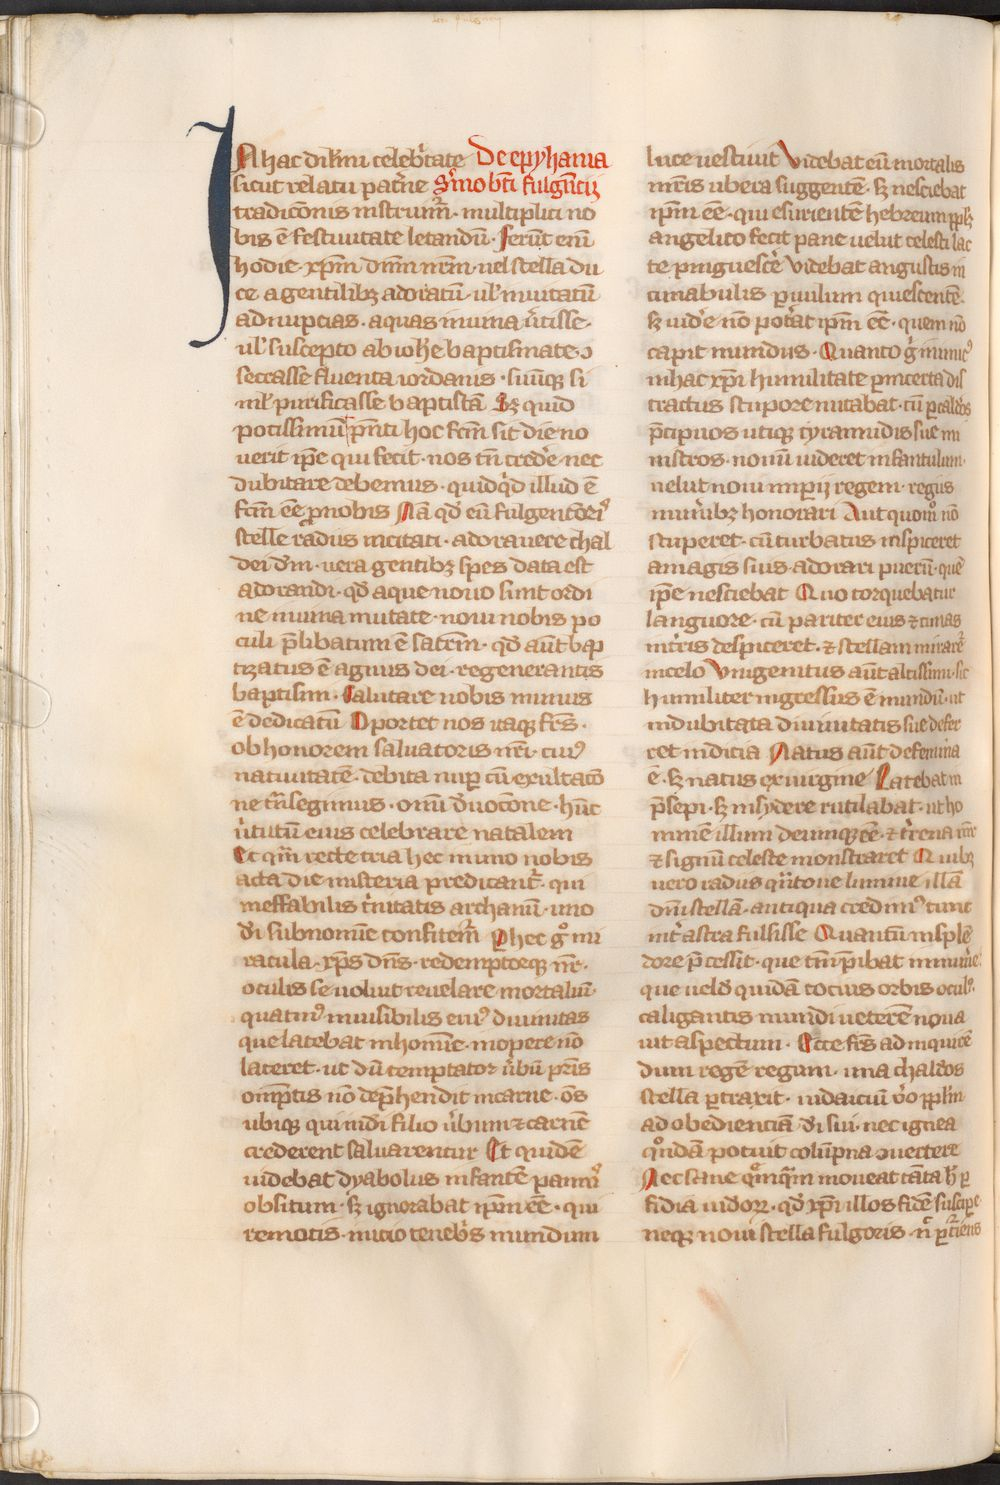 IN hac dilcīmi celebᷓtate De epyhania
sicut relatu pat̾ne S̾mo bt̄i fulgēcij
tradic̄onis instrumr̄. multiplici no
bis ē festiuitate letandū. ferūt enī
hodie. xp̄m dn̄m nr̄m. uel stella du
ce a gentilibꝫ adoratū. ul' inuitatū
ad nuptias. aquas in uina u̾tisse.
ul' suscepto ab ioh̄e baptismate. ↄ
secrasse fluenta iordanis. suūqꝫ si
ml' purificasse baptistā Sꝫ quid
potissimū p̄nti hoc fc̄m sit die no
uerit ip̄e qui fecit. nos tn̄ cred̾e nec
dubitare debemus. quidq̄d illud ē
fc̄m eē ꝓ nobis Nā qd̄ eū fulgentiori⁹
stelle radius incitati. adorauere chal
dei dn̄m. uera gentibꝫ spes data est
adorandi. qd̄ aque nouo sunt ordi
ne in uina mutate. noui nobis po
culi p̄libatum ē sacrm̄. qd̄ aūt bap
tizatus ē agnus dei. regenerantis
baptismi. Salutare nobis munus
ē dedicatū Oportet nos itaqꝫ frs̄.
ob honorem saluatoris nr̄i. cui⁹
natiuitatē. debita nuꝑ cū exultac̄o
ne tn̄segimus. omī d̾uoc̄one. hūc
u̾tutū eius celebrare natalem
Et qm̄ recte tria hec in uno nobis
acta die misteria predicant̾. qui
ineffabilis t̾nitatis archanū. uno
d̾i sub nomīe confitem̄ Phec g̊ mi
racula. xp̄s dn̄s. redemptorqꝫ nr̄.
oculis se uoluit reuelare mortaliū.
quatin⁹ inuisibilis eiu⁹ diuinitas
que latebat in homīe. in opere nō
lateret. ut dū temptator u̾bū pr̄is
omp̄tis nō dep̄hendit in carne. oēs
ubiqꝫ qui in d̾i filio u̾bum ⁊ carnē
crederent saluarentur Et quidē
uidebat dyabolus infantē pannis
obsitum. sꝫ ignorabat ip̄m eē. qui
remotis. inicio teneb̾s mundum
luce uestiuit Videbat eū mortalis
mr̄is ubera suggentē. sꝫ nesciebat
ip̄m eē. qui esurientē hebreum pplm̄
angelico fecit pane uelut celesti lac
te pinguesc̾e Videbat angustis in
cunabulis ꝑuulum quiescentē.
sꝫ uid̾e nō pot̾at ip̄m eē. quem nō
capit mundus. Quanto g̊ inimic⁹
in hac xp̄i humilitate ꝑ incerta dis
tractus stupore nutabat. cū ꝑ caldeos
p̄cipuos utiqꝫ tyrannidis sue mi
nistros. nouū uideret infantulum.
uelut noui imperij regem. regiis
munibꝫ honorari Aut quom̊ nō
stuperet. cū turbatus inspiceret
a magis suis. adorari puerū. quē
ip̄e nesciebat Quo torquebatur
languore. cū pariter eius ⁊ cunas
in t̾ris despiceret. ⁊ stellam mirare⁊
in celo Vnigenitus aūt altissimi. sic
humiliter ingressus ē mundū. ut
indubitata diuinitatis sue defer
ret indicia Natus aūt de femina
ē. sꝫ natus ex uirgine Latebat in
p̄sepi. sꝫ in sydere rutilabat. ut ho
minē illum deumqꝫ eē. ⁊ t̾rena mr̄
⁊ signū celeste monstraret Quibꝫ
uero radiis qn̄tone lumine illā
dn̄i stellā. antiqua credim⁹ tunc
int̾ astra fulsisse Quantū insplē
dore p̄cessit. que tm̄ p̄ibat in mune̾
que uelud quidā tocius orbis oculꝰ.
caligantis mundi ueterē noua
uit aspectum. Ecce frs̄ ad inquirē
dum regē regum. una chaldeos
stella ꝑtraxit. iudaicū u̾o pplm̄
ad obedienciā d̾i sui. nec ignea
q̊ndā potuit colūpna ↄuertere
Nec sane q̊mq̄m moueat tāta h̾ ꝑ
fidia iud̾oꝝ. qd̾ xp̄i illos fidē suscipe
neqꝫ noui stella fulgoris. n̄ ꝑt̾riens